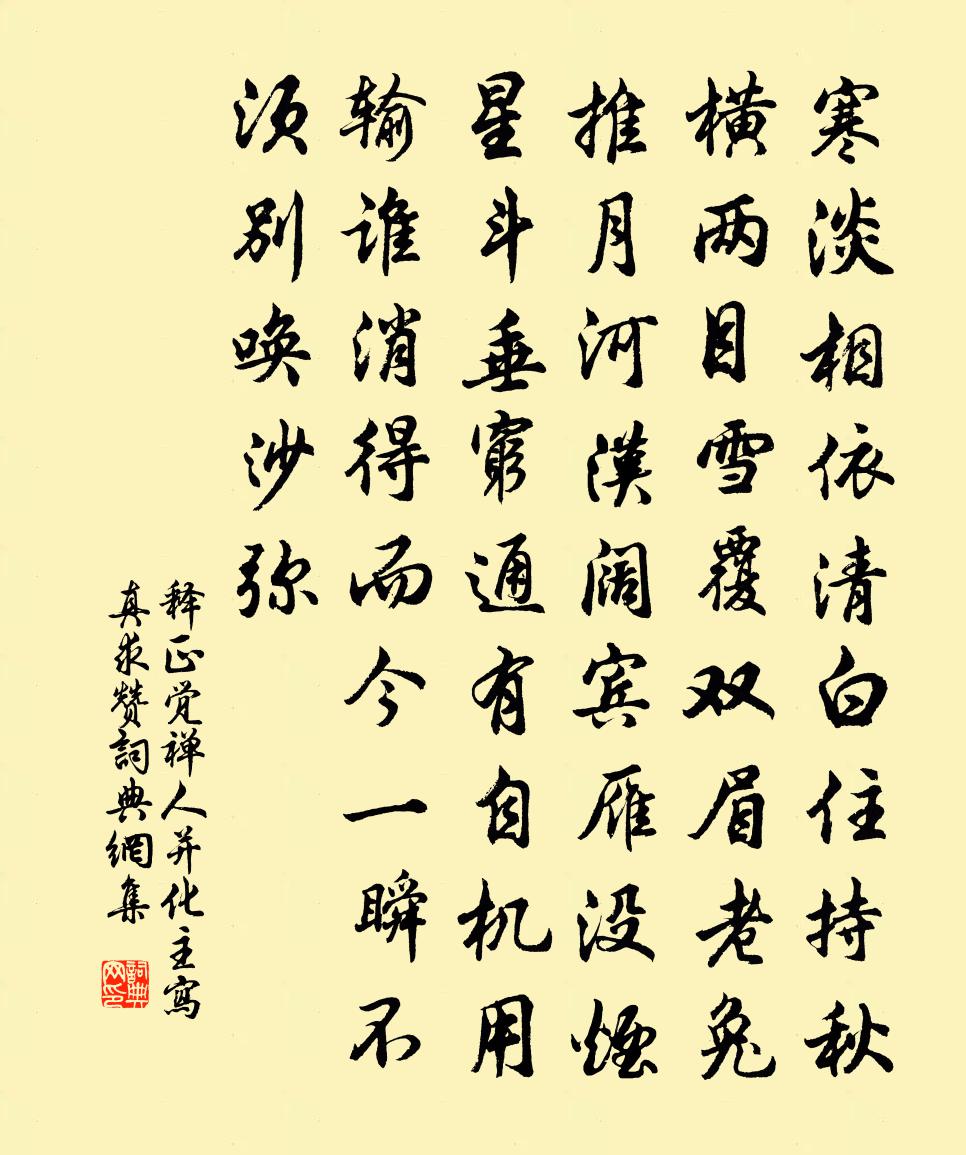 寒淡相依清白住持秋
横两目雪覆双眉老兔
推月河漢阔宾雁没煙
星斗垂穷通有自机用
输谁消得而今一瞬不
须别唤沙弥
释正觉禅人并化主寫
真求赞詞典網集
詞典网印